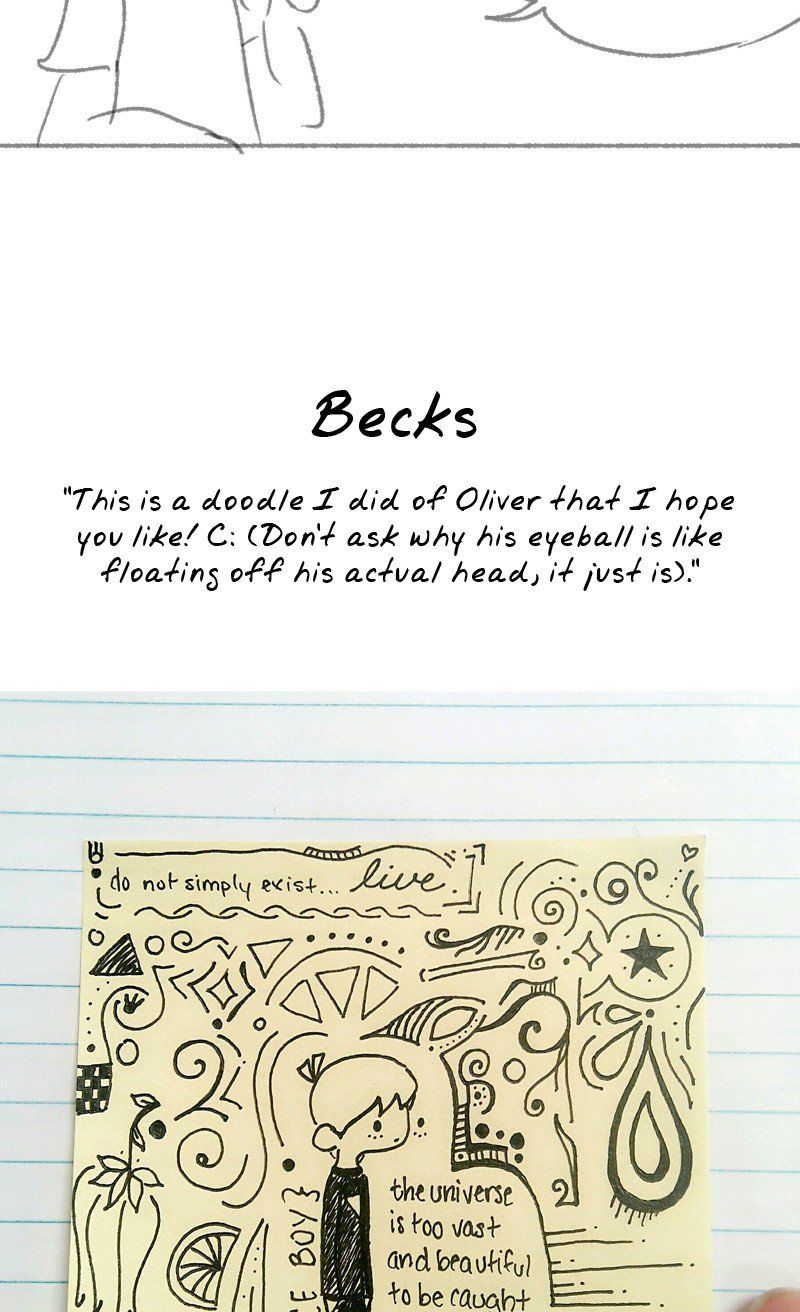 Becks
"This is a doodle I did of Oliver that I hope
you like! C: (Don't ask why his eyeball is like
floating off his actual head, it just is)."
do not simply exist... live.
the universe
is too vast
and beautiful
to be caught
BOY}